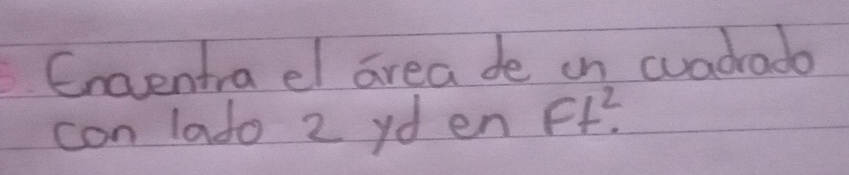 5. Encuentra el área de un cuadrado
con lado 2 yd en Ft².